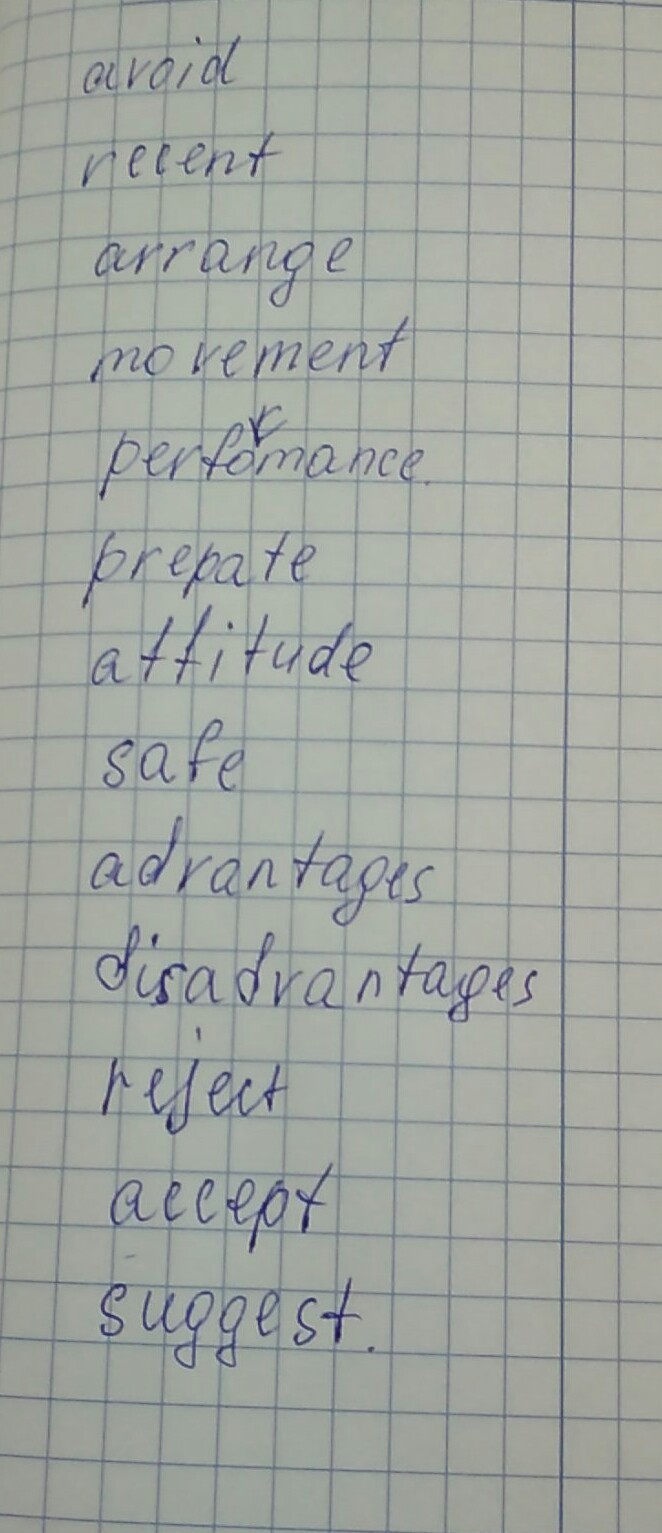 avoid
recent
arrange
movement
performance.
prepate
attitude
safe
advantages
disadvantages
reject
accept
suggest.